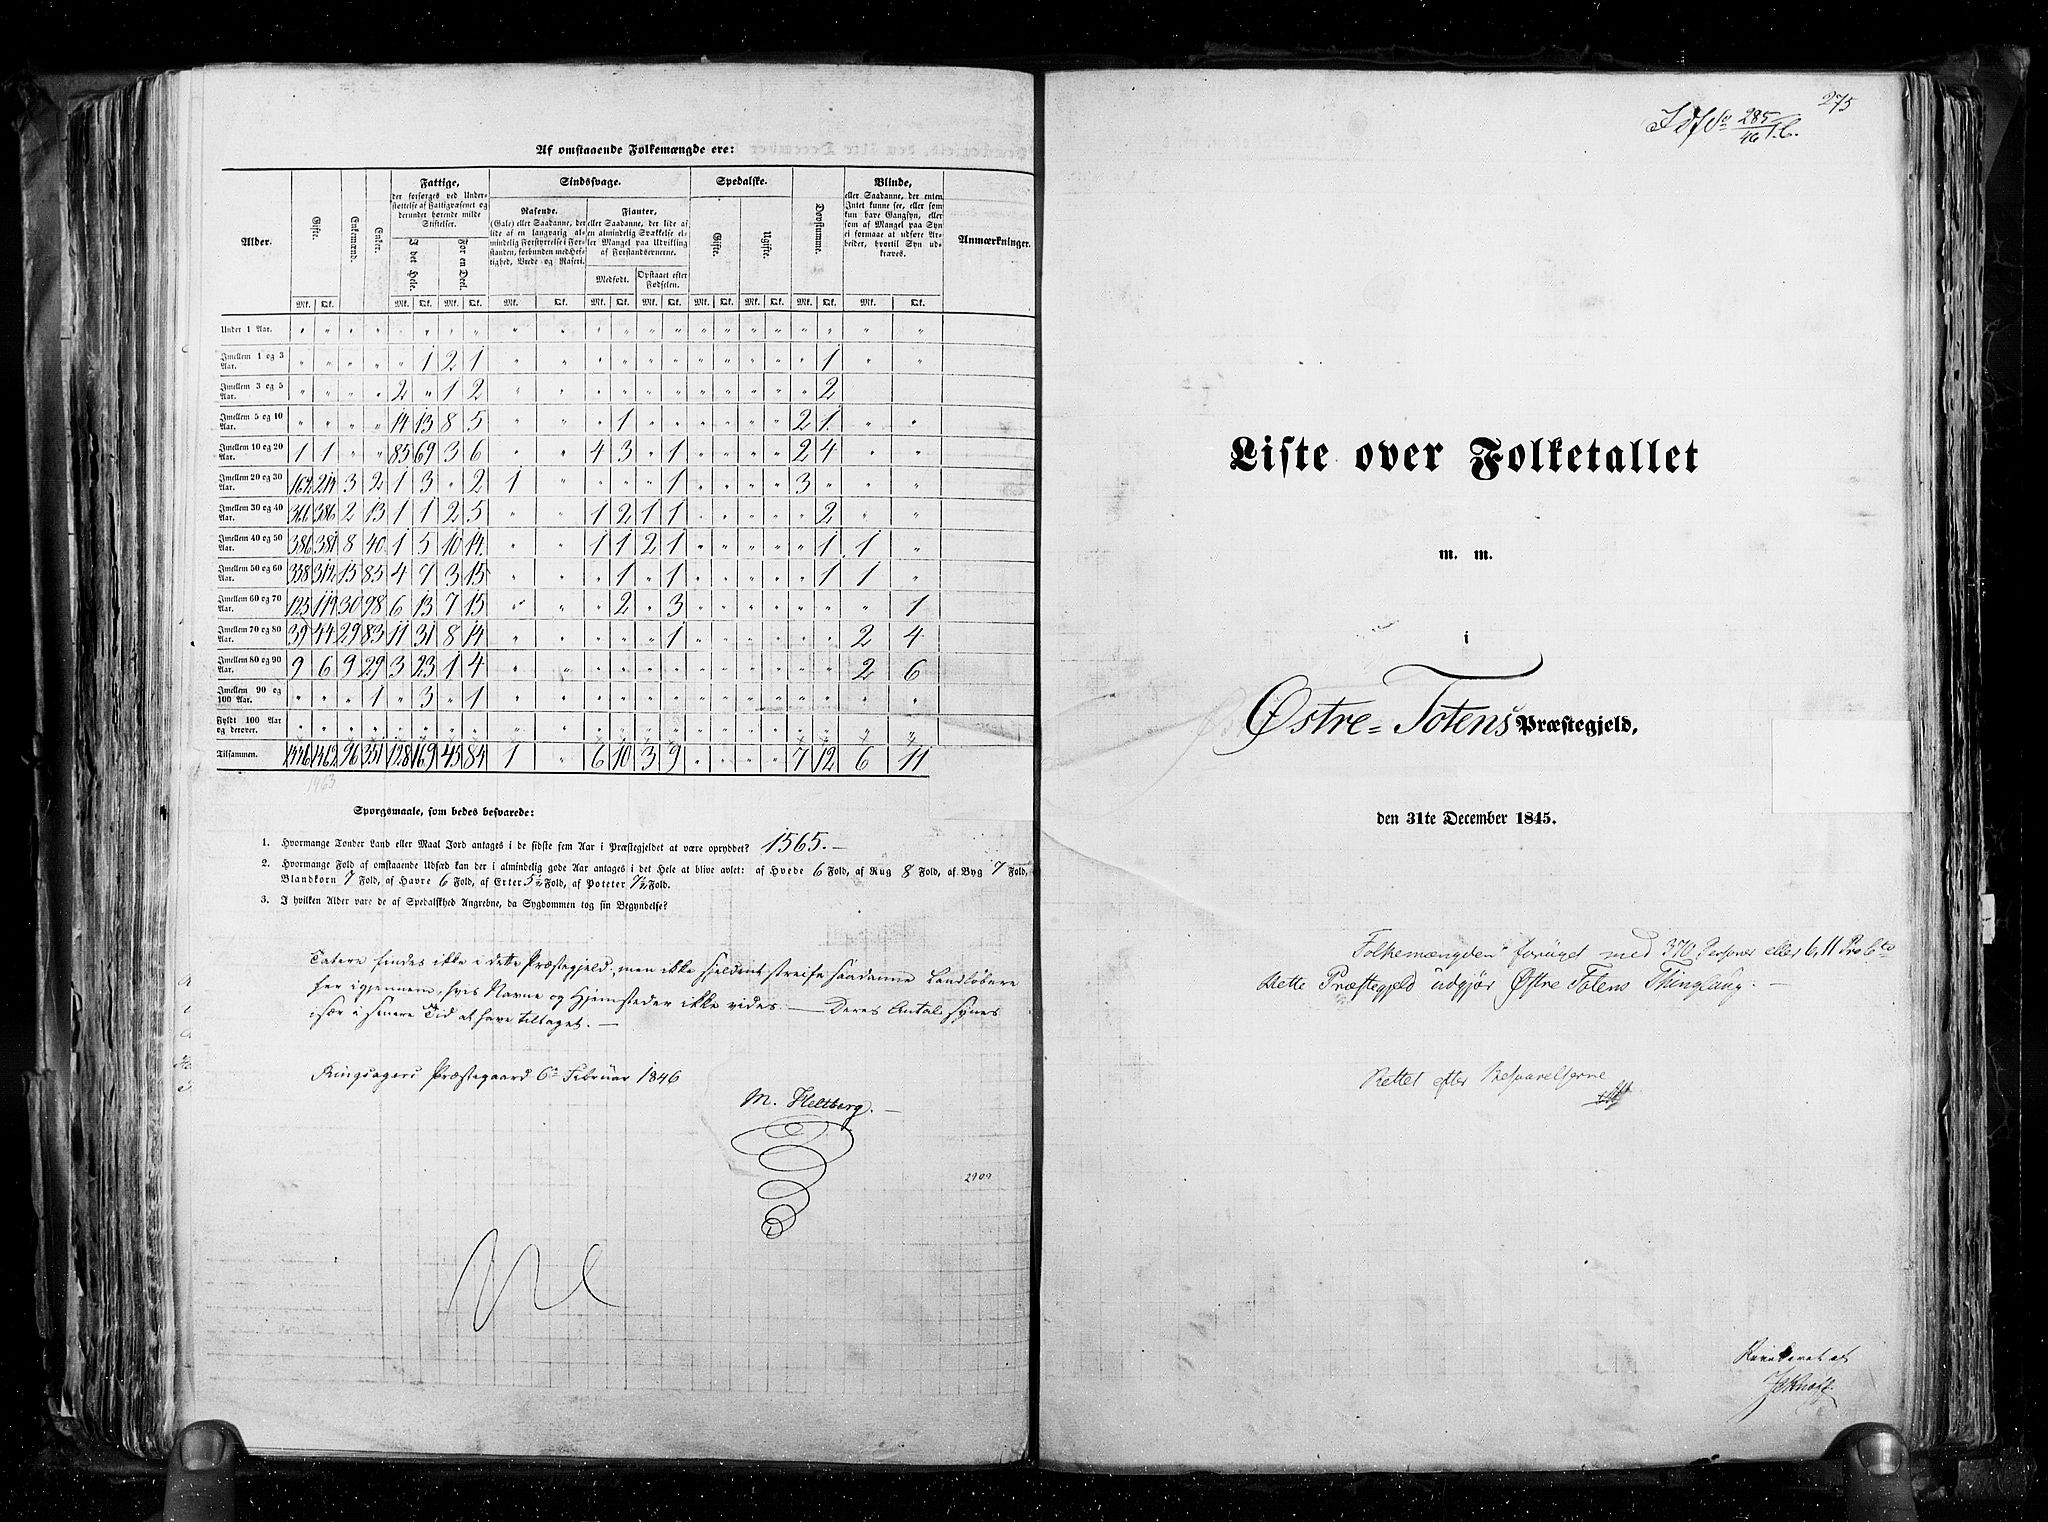 Af omstaaende Folkemængde ere:
Alder. Gifte. Enkemænd. Enker. Fattige, der forsørges ved Understøttelse af Fattigvæsenet og derunder hørende milde Stiftelser. Sindssvage. Spedalske. Døvstumme. Blinde, eller Saadanne, der enten Intet kunne see, eller som kun have Gangsyn, eller som af Mangel paa Syn ei formaae at udføre Arbeider, hvortil Syn udkræves. Anmærkninger.
I det Hele. For en Deel. Rasende. (Gale) eller Saadanne, der lide af en langvarig almindelig Forstyrrelse i Forstanden, forbunden med Heftighed, Vrede og Raseri. Fianter, eller Saadanne, der lide af en almindelig Svækkelse eller Mangel paa Udvikling af Forstandsevnerne. Gifte. Ugifte.
Medfødt. Opstaaet efter Fødselen.
Mk. Qk. Mk. Qk. Mk. Qk. Mk. Qk. Mk. Qk. Mk. Qk. Mk. Qk. Mk. Qk. Mk. Qk. Mk. Qk.
Under 1 Aar. " " " " " " " " " " " " " " " " " " " " " "
Imellem 1 og 3 Aar. " " " " " 1 2 1 " " " " " " " " " " " 1 " "
Imellem 3 og 5 Aar. " " " " 2 " 1 2 " " " " " " " " " " " 2
Imellem 5 og 10 Aar. " " " " 14 13 8 5 " " " 1 " " " " " " 2 1 " "
Imellem 10 og 20 Aar. 1 1 " " 85 69 3 6 " " 4 3 " 1 " " " " 2 4 " "
Imellem 20 og 30 Aar. 164 214 3 2 1 3 " 2 1 " " " " 1 " " " " 3 " " "
Imellem 30 og 40 Aar. 366 386 2 13 1 1 2 5 " " 1 2 1 1 " " " " " 2 " "
Imellem 40 og 50 Aar. 386 381 8 40 1 5 10 14 " " 1 1 2 1 " " " " " 1 1 "
Imellem 50 og 60 Aar. 358 312 15 85 4 7 3 15 " " " 1 " 1 " " " " " 1 1 "
Imellem 60 og 70 Aar. 123 119 30 98 6 13 7 15 " " " 2 " 3 " " " " " " " 1
Imellem 70 og 80 Aar. 39 44 29 83 11 31 8 14 " " " " " 1 " " " " " " 2 4
Imellem 80 og 90 Aar. 9 6 9 29 3 23 1 4 " " " " " " " " " " " " 2 6
Imellem 90 og 100 Aar. " " " 1 " 3 " 1 " " " " " " " " " " " " " "
Fyldt 100 Aar og derover. " " " " " " " " " " " " " " " " " " " " " "
Tilsammen. 1446 1462 96 351 128 169 45 84 1 " 6 10 3 9 " " " " 7 12 6 11
1463
Spørgsmaale, som bedes besvarede:
1. Hvormange Tønder Land eller Maal Jord antages i de sidste fem Aar i Præstegjeldet at være opryddet? 1565.—
2. Hvormange Fold af omstaaende Udsæd kan der i almindelig gode Aar antages i det Hele at blive avlet: af Hvede 6 Fold, af Rug 8 Fold, af Byg 7 Fold,
Blandkorn 7 Fold, af Havre 6 Fold, af Erter 5½ Fold, af Poteter 7½ Fold.
3. I hvilken Alder vare de af Spedalskhed Angrebne, da Sygdommen tog sin Begyndelse?
Tatere findes ikke i dette Præstegjeld, men ikke sjeldent streife saadanne Landløbere
her igjennem, hvis Navne og Hjemsteder ikke vides. — Deres Antal synes
især i senere Tid at have tiltaget. —
Ringsagers Præstegaard 6te Februar 1846
M. Heltberg. —
2909
275
285/46
Liste over Folketallet
m. m.
i
Østre-Totens Præstegjeld.
den 31te December 1845.
Folkemængden forøget med 370 Personer eller 6,11 Procto
Dette Præstegjeld udgjør Østre Totens Thinglaug. —
Rettet efter Besvarelserne
Revideret af